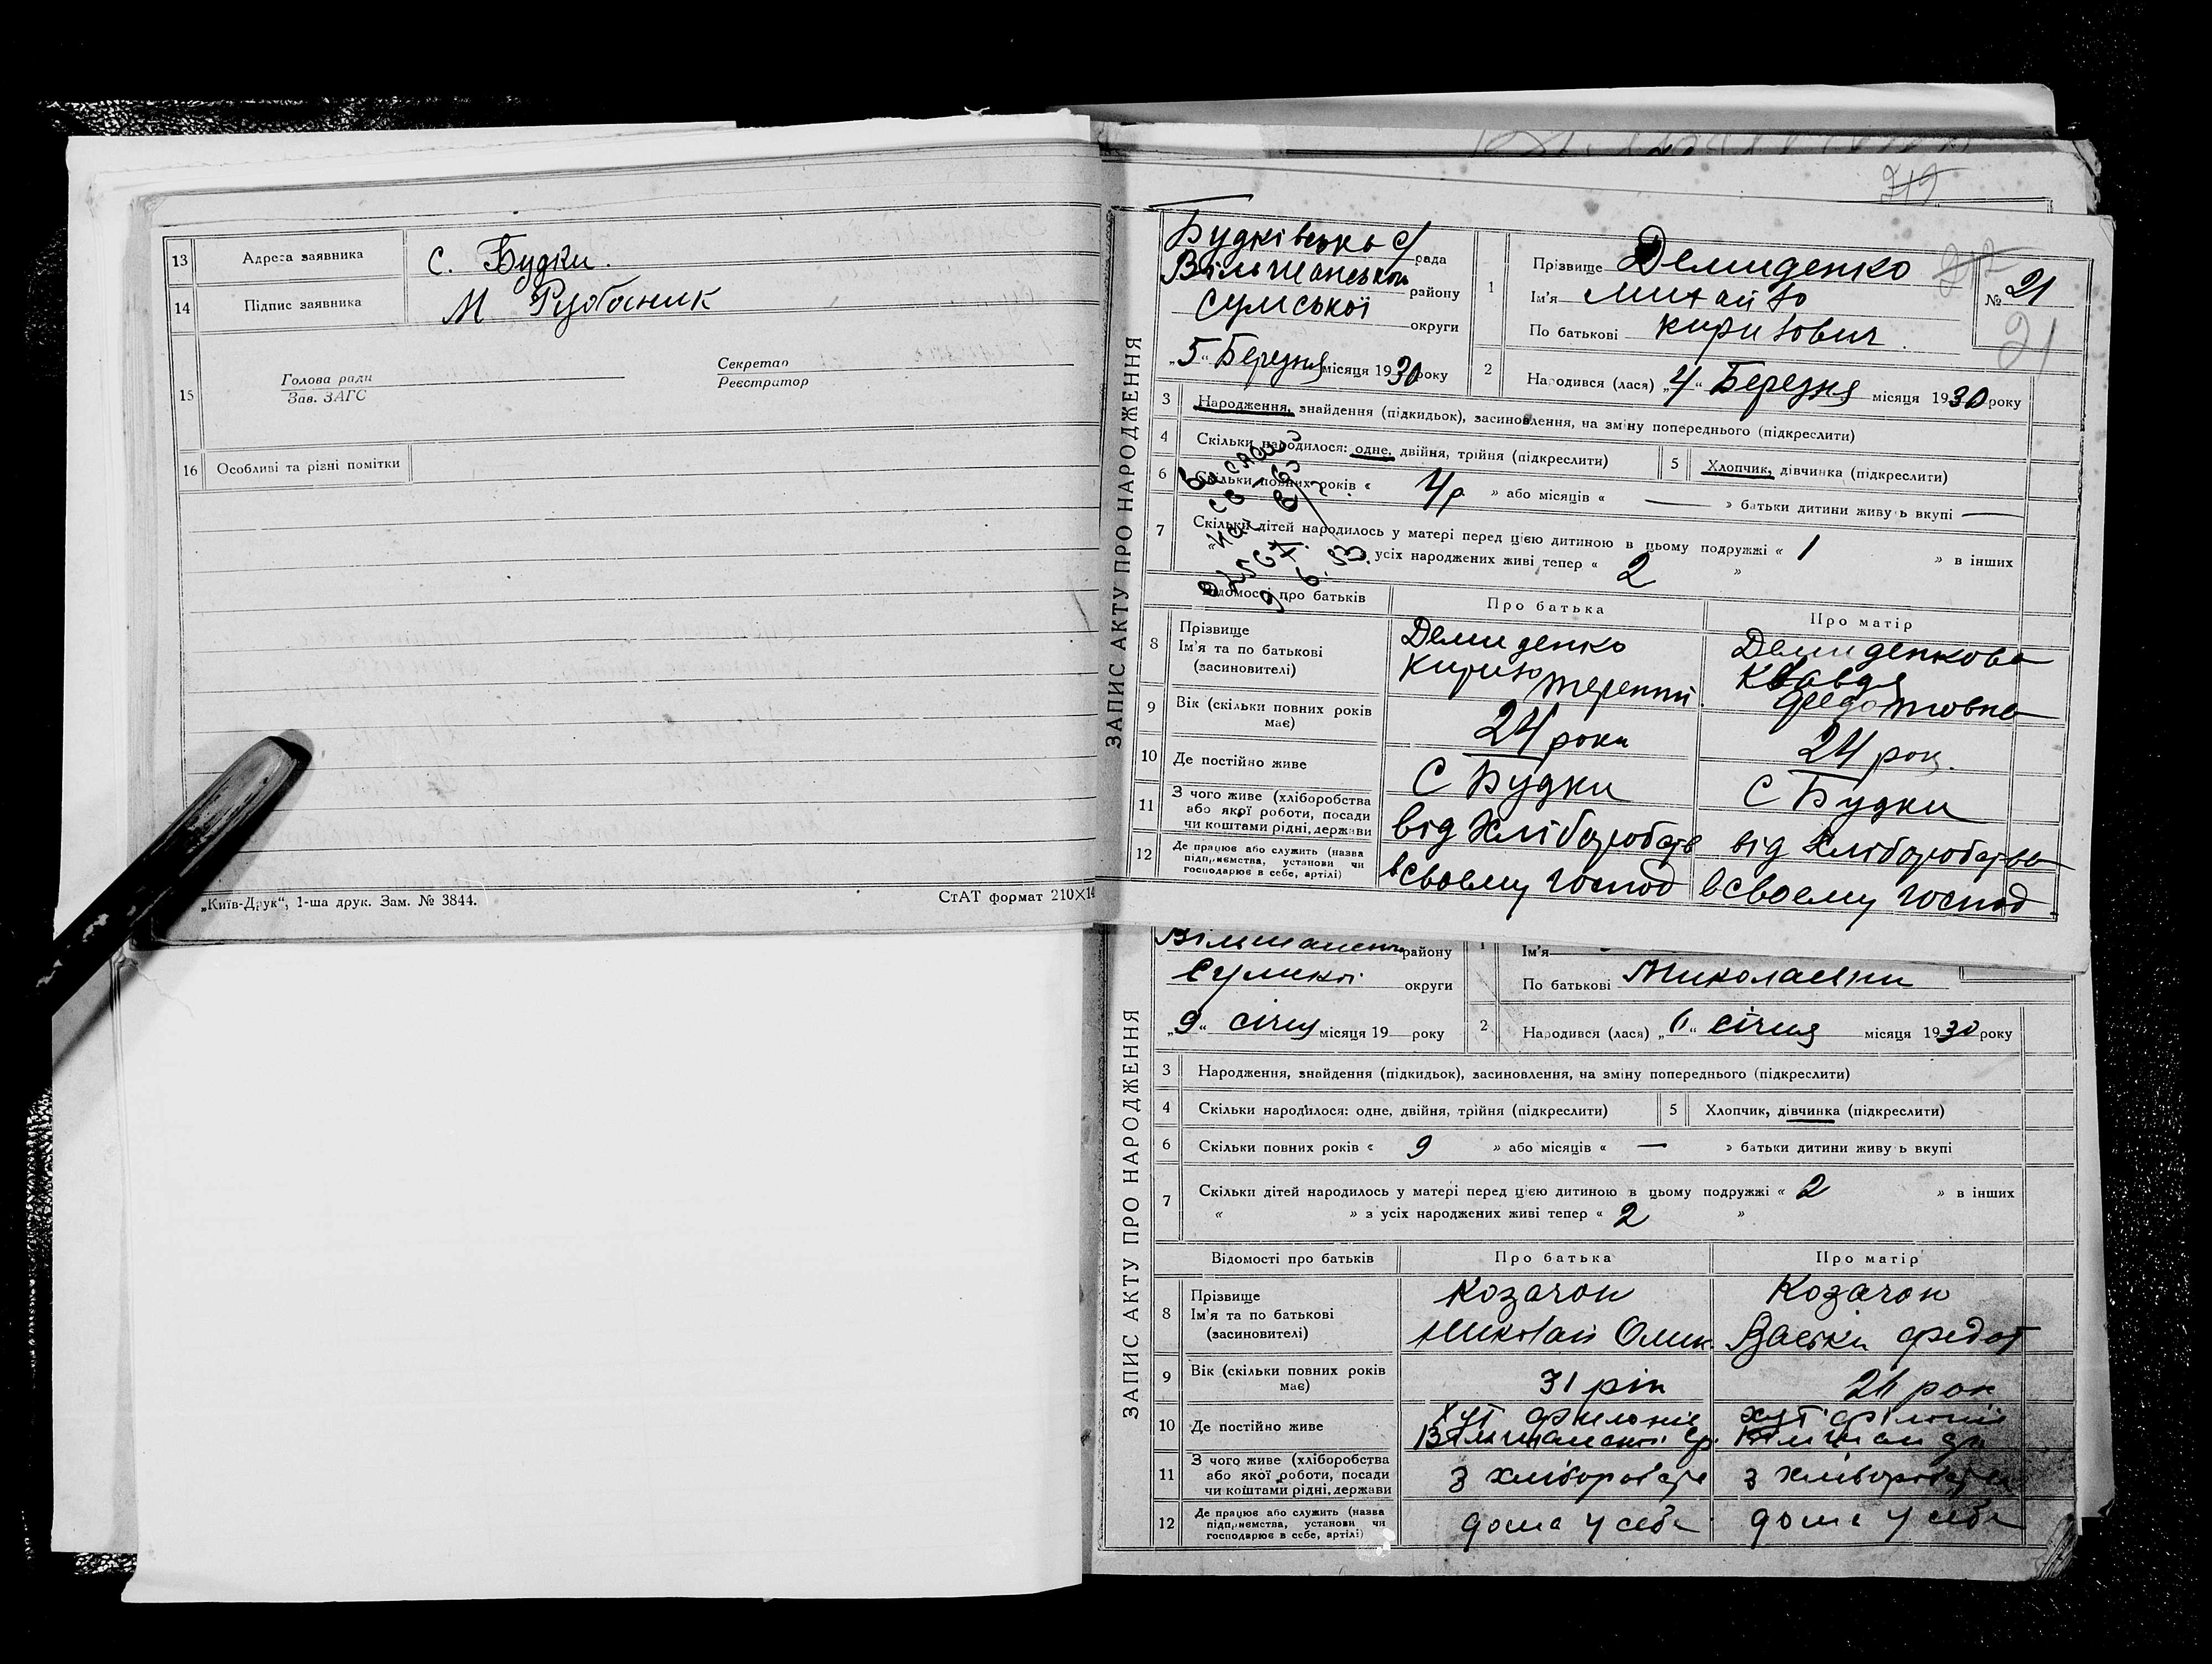 13 Адреса заявника с. Будки.
14 Підпис заявника М Рубаник
15 Голова ради Секретар
Зав. ЗАГС Реєстратор
16 Особливі та різні помітки
„Київ-Друк“, 1-ша друк. Зам. № 3844. СтАТ формат 210×14
ЗАПИС АКТУ ПРО НАРОДЖЕННЯ
Будківська с/ рада
Вільшанської району
Сумської округи
„5“ Березня місяця 1930 року
1 Прізвище Демиденко
Ім'я Михайло
По батькові Кирилович
№ 21
21
2 Народився (лася) „4“ Березня місяця 1930 року
3 Народження, знайдення (підкидьок), засиновлення, на зміну попереднього (підкреслити)
4 Скільки народилося: одне, двійня, трійня (підкреслити) 5 Хлопчик, дівчинка (підкреслити)
6 Скільки повних років « 4р » або місяців « — » батьки дитини живуть вкупі —
7 Скільки дітей народилось у матері перед цією дитиною в цьому подружжі « 1 » в інших
усіх народжених живі тепер « 2 »
Відомості про батьків Про батька Про матір
8 Прізвище Ім'я та по батькові (засиновителі)
Демиденко Кирило Теренті.
Демиденкова Клавдя Федотовна
9 Вік (скільки повних років має) 24 роки 24 рок.
10 Де постійно живе С Будки С Будки
11 З чого живе (хліборобства або якої роботи, посади чи коштами рідні, держави від Хліборобств від Хліборобства
12 Де працює або служить (назва підприємства, установи чи господарює в себе, артілі) в своему господ в своему господ.
ЗАПИС АКТУ ПРО НАРОДЖЕННЯ
району
Сумької округи
„9“ січня місяця 19 року
1 Ім'я
По батькові Миколаєвни
2 Народився (лася) січня місяця 1930 року
3 Народження, знайдення (підкидьок), засиновлення, на зміну попереднього (підкреслити)
4 Скільки народилося: одне, двійня, трійня (підкреслити) 5 Хлопчик, дівчинка (підкреслити)
6 Скільки повних років « 9 » або місяців « — » батьки дитини живуть вкупі
7 Скільки дітей народилось у матері перед цією дитиною в цьому подружжі « 2 » в інших
« » з усіх народжених живі тепер « 2 »
Відомості про батьків Про батька Про матір
8 Прізвище Ім'я та по батькові (засиновителі)
Козачок
Козачок
Федот
9 Вік (скільки повних років має) 31 рік рок
10 Де постійно живе
11 З чого живе (хліборобства або якої роботи, посади чи коштами рідні, держави
12 Де працює або служить (назва підприємства, установи чи господарює в себе, артілі) дома у себе дома у себе